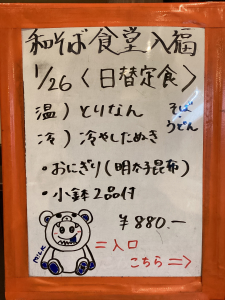 和そば食堂入福
1/26〈日替定食〉
温)とりなん そば
冷)冷やしたぬき うどん
・おにぎり(明太子昆布)
・小鉢2品付
¥880.-
=入口
こちら=>
MILK